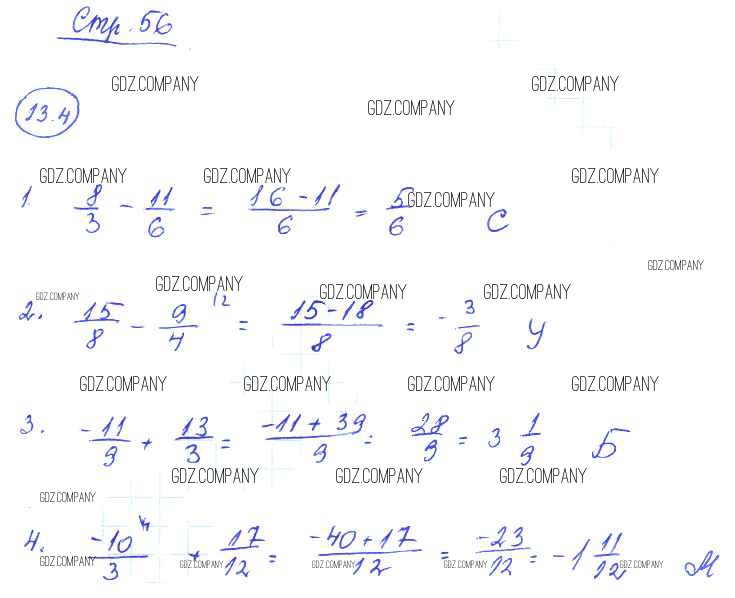 Стр. 56
GDZ.COMPANY GDZ.COMPANY
GDZ.COMPANY
13.4
GDZ.COMPANY GDZ.COMPANY GDZ.COMPANY
1. 8/3 - 11/6 = 16-11/6 = 5/6 С
GDZ.COMPANY
GDZ.COMPANY
GDZ.COMPANY GDZ.COMPANY GDZ.COMPANY GDZ.COMPANY
2. 15/8 - 9/4 12 = 15-18/8 = -3/8 У
GDZ.COMPANY GDZ.COMPANY GDZ.COMPANY GDZ.COMPANY
3. -11/9 + 13/3 = -11+39/9 = 28/9 = 3 1/9 Б
GDZ.COMPANY GDZ.COMPANY GDZ.COMPANY
GDZ.COMPANY
4. -10/3 + 17/12 = -40+17/12 = -23/12 = -1 11/12 М
GDZ.COMPANY GDZ.COMPANY GDZ.COMPANY GDZ.COMPANY GDZ.COMPANY